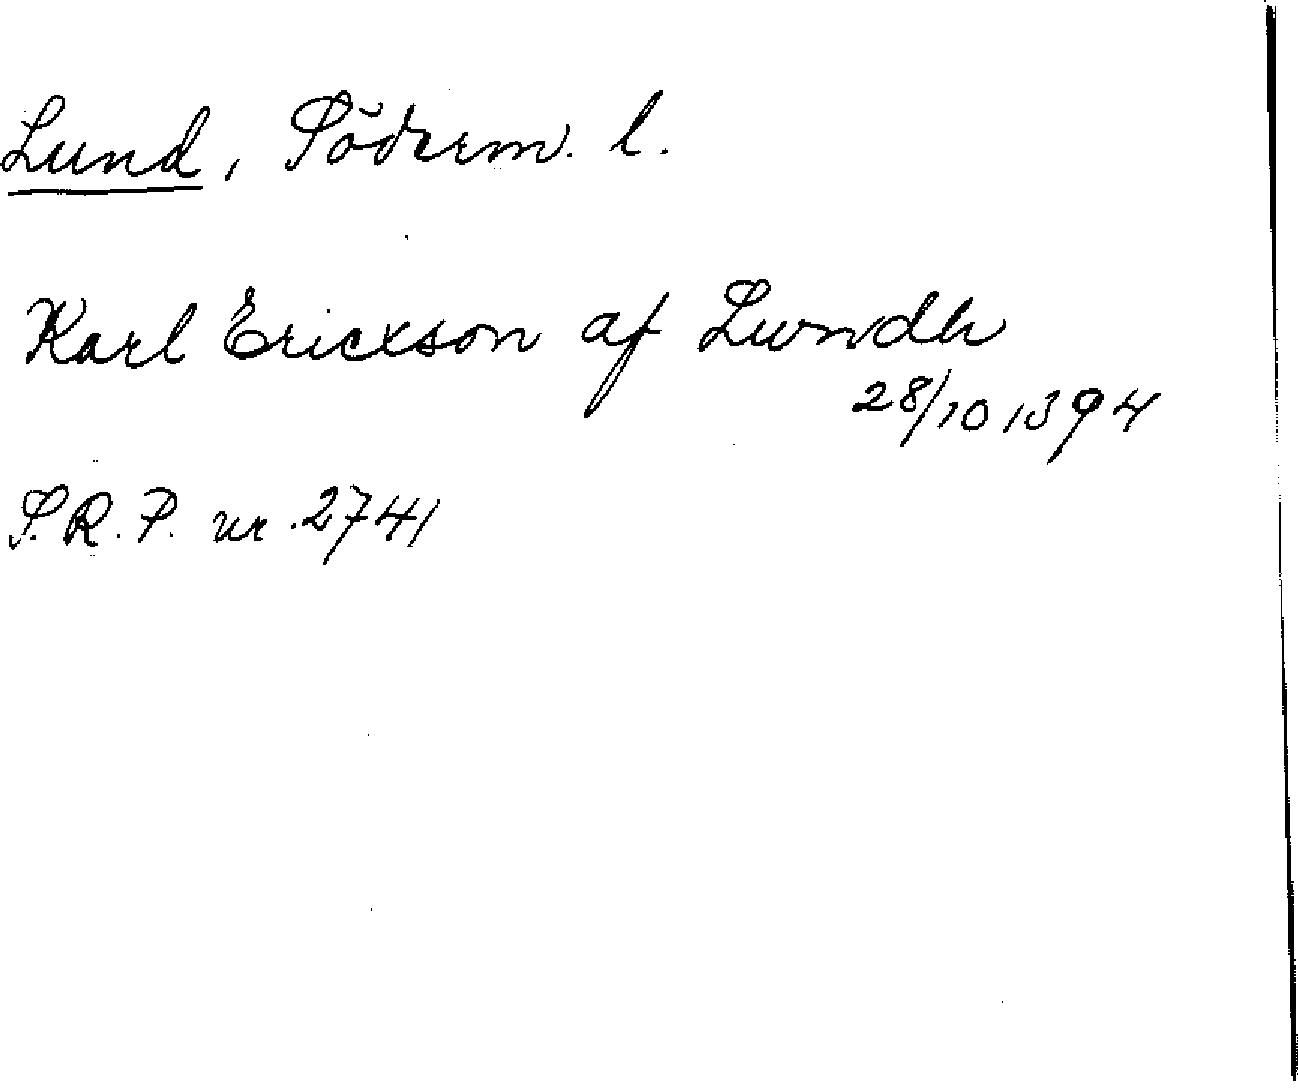 Lund, Söderm. l.
Karl Ericxson af Lundh
28/10 1394
S.R.P. nr. 2741